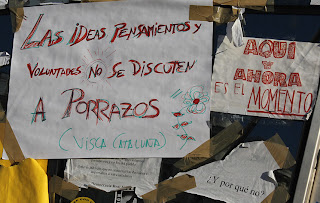 LAS IDEAS PENSAMIENTOS Y
VOLUNTADES NO SE DISCUTEN
A PORRAZOS
(VISCA CATALUNA)
AQUI
Y
AHORA
ES EL MOMENTO
¿Y por qué no?